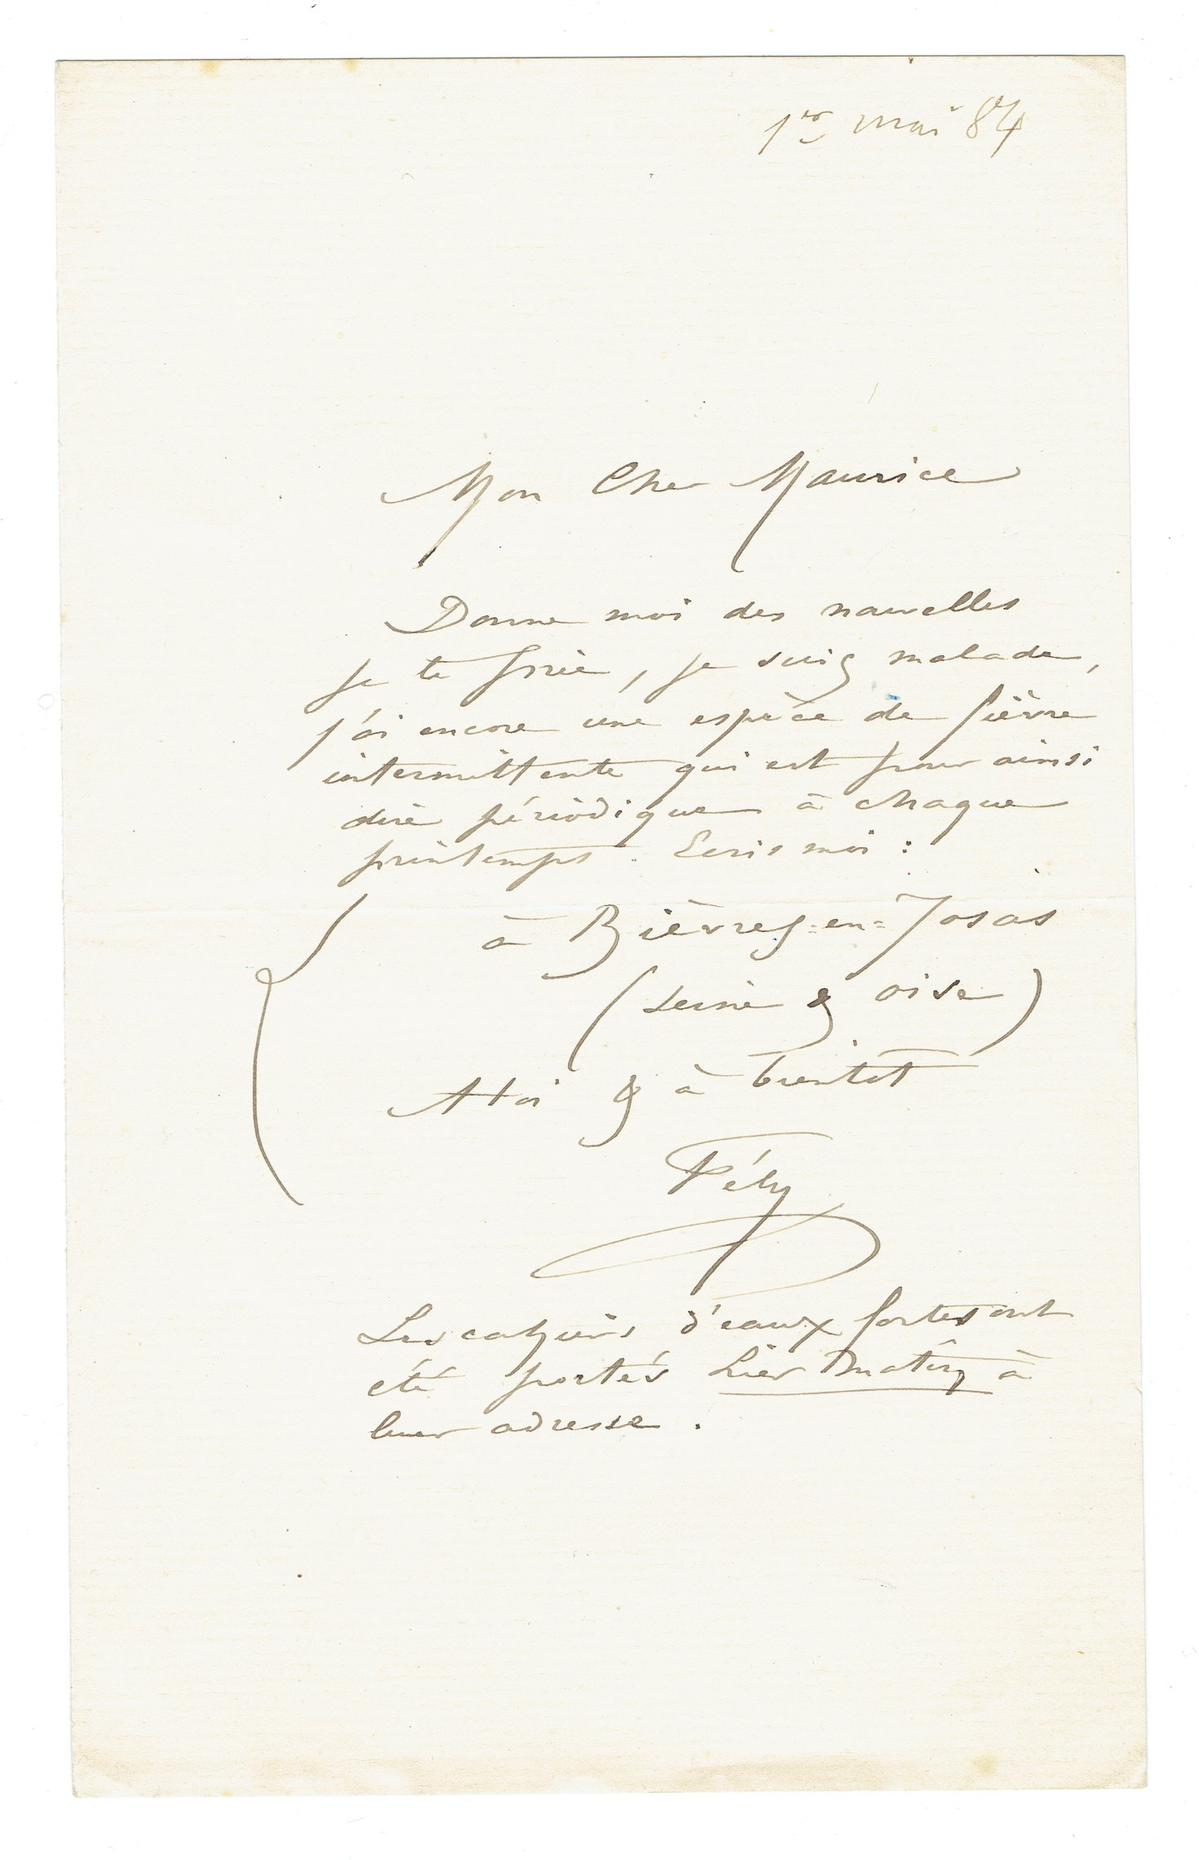 1er mai 84
Mon Cher Maurice
Donne moi des nouvelles
je te prie, je suis malade,
j'ai encore une espèce de fièvre
intermittente qui est pour ainsi
dire périodique à chaque
printemps. Ecris moi :
à Bièvres=en=Josas
(seine & oise)
A toi & à bientot
Fély
Les cahiers d'eaux fortes ont
été portés hier matin à
leur adresse.